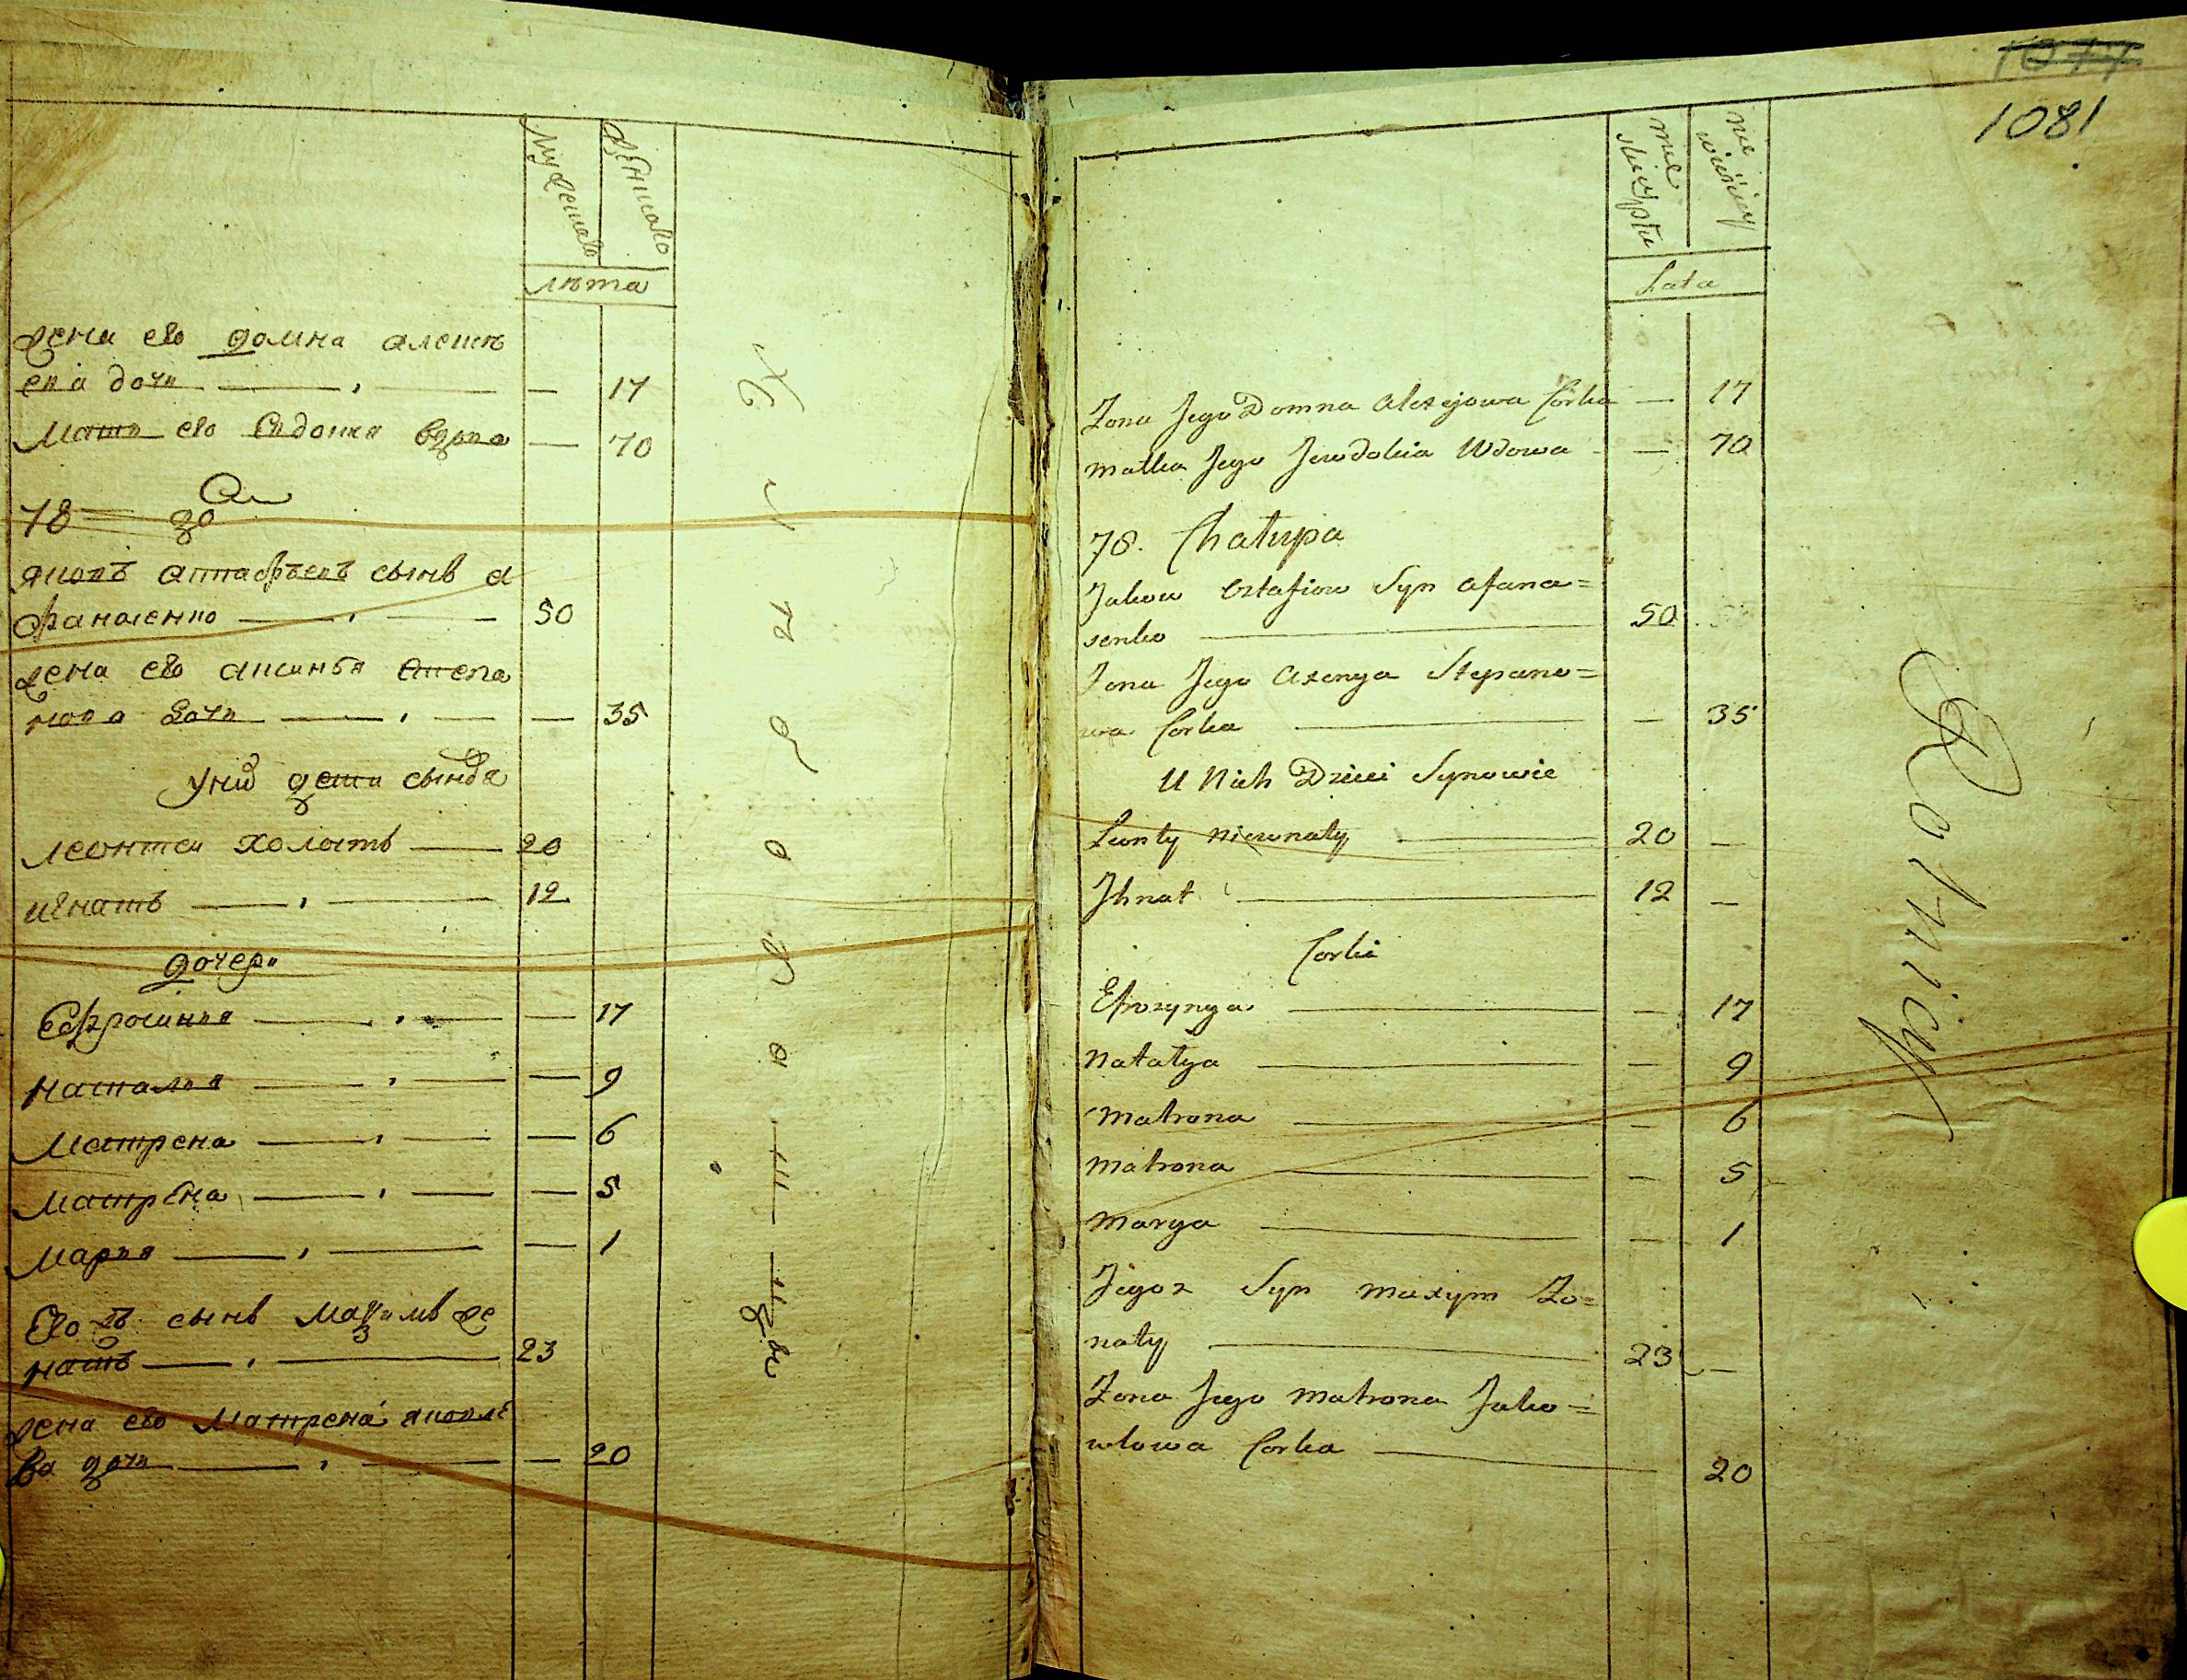 мужеска
женска
лѣта
жена его домна алексѣ
ева дочь — — 17
Мать его Евдокия вдова — 70
78
яковъ астафьевъ сынъ а
фанасенко — 50
жена его аксинья степа
нова дочь — — 35
у них дети сыновя
леонтеи холость — 20
игнатъ — 12
дочери
Ефросиния — — 17
наталия — — 9
Матрена — — 6
Матрена — — 5
Мария — — 1
Его жъ сынъ Мазимъ же
натъ — 23
жена его Матрена яковле
ва дочь — — 20
1077
1081
męskiey płci
niewieściey
Lata
Żona Jego Domna Alexejowa Corka — 17
Matka Jego Jewdokia Wdowa — 70
78. Chałupa
Jakow Ostafiow Syn Afana=
senko — 50
Żona Jego Axenya Stepano=
wa Corka — — 35
U Nich Dzieci Synowie
Leonty nieżonaty — 20 —
Ihnat — 12 —
Corki
Efrozynya — — 17
Natalya — — 9
Matrona — — 6
Matrona — — 5
Marya — — 1
Jegoz Syn Maxym Żo=
naty — 23 —
Żona Jego Matrona Jako=
wlowa Corka — 20
Rolnicy